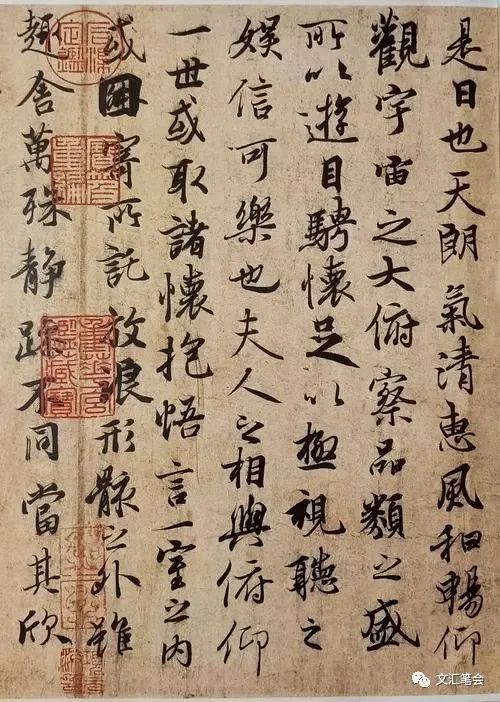 是日也天朗氣清惠風和暢仰
觀宇宙之大俯察品類之盛
所以遊目騁懷足以極視聽之
娛信可樂也夫人之相與俯仰
一世或取諸懷抱悟言一室之內
或因寄所託放浪形骸之外雖
趣舍萬殊靜躁不同當其欣
文汇笔会